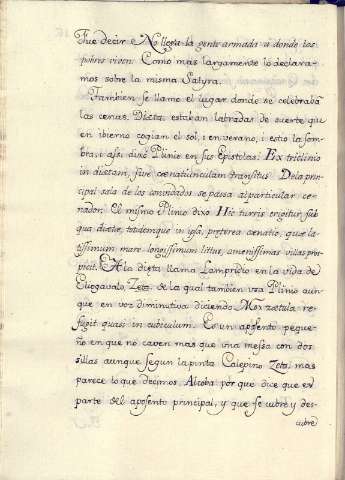 Fue decir e No llega la gente armada a donde los
pobres viven. Como mas largamente lo declara-
mos sobre la misma Satyra.
Tambien se llamo el lugar donde se celebrabã
las cenas. Dieta, estaban labradas de suerte que
en ibierno cogian el sol, i en verano, i estio la som-
bra, i assi dixo Plinio en sus Epistolas: Ex triclinio
in diætam, sive cœnatiunculam transitus De la prin-
cipal sala de los convidados se passa al particular ce-
nador: El mismo Plinio dixo Hic turris erigitur, sub
qua diætæ, totademque in ipsa, præterea cœnatio, quæ la-
tissimum mare longissimum littus, amenissimas villas pros-
picit. A la dieta llama Lampridio en la vida de
Eliogavalo, Zeta: de la qual tambien usa Plinio aun-
que en voz diminutiva diciendo Mox zætula re-
fugit quasi in cubiculum. Es un aposento peque-
ño en que no caven mas que una messa con dos
sillas aunque segun la pinta Calepino Zeta, mas
parece lo que decimos, Alcoba: por que dice que es
parte del aposento principal, y que se cubre y des-
cubre